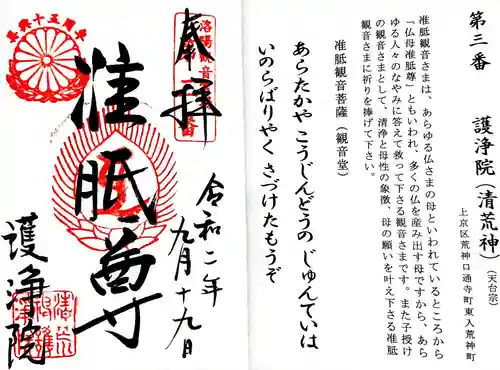 第三番 護浄院(清荒神)(天台宗)
上京区荒神口通寺町東入荒神町
准胝観音さまは、あらゆる仏さまの母といわれているところから
「仏母准胝尊」ともいわれ、多くの仏を産み出す母ですから、あら
ゆる人々のなやみに答えて救って下さる観音さまです。また子授け
の観音さまとして、清浄と母性の象徴、母の願いを叶え下さる准胝
観音さまに祈りを捧げて下さい。
准胝観音菩薩(観音堂)
あらたかや こうじんどうの じゅんていは
いのらばりやく さづけたもうぞ
奉拝
洛陽観音
准胝尊
令和二年
九月十九日
護浄院